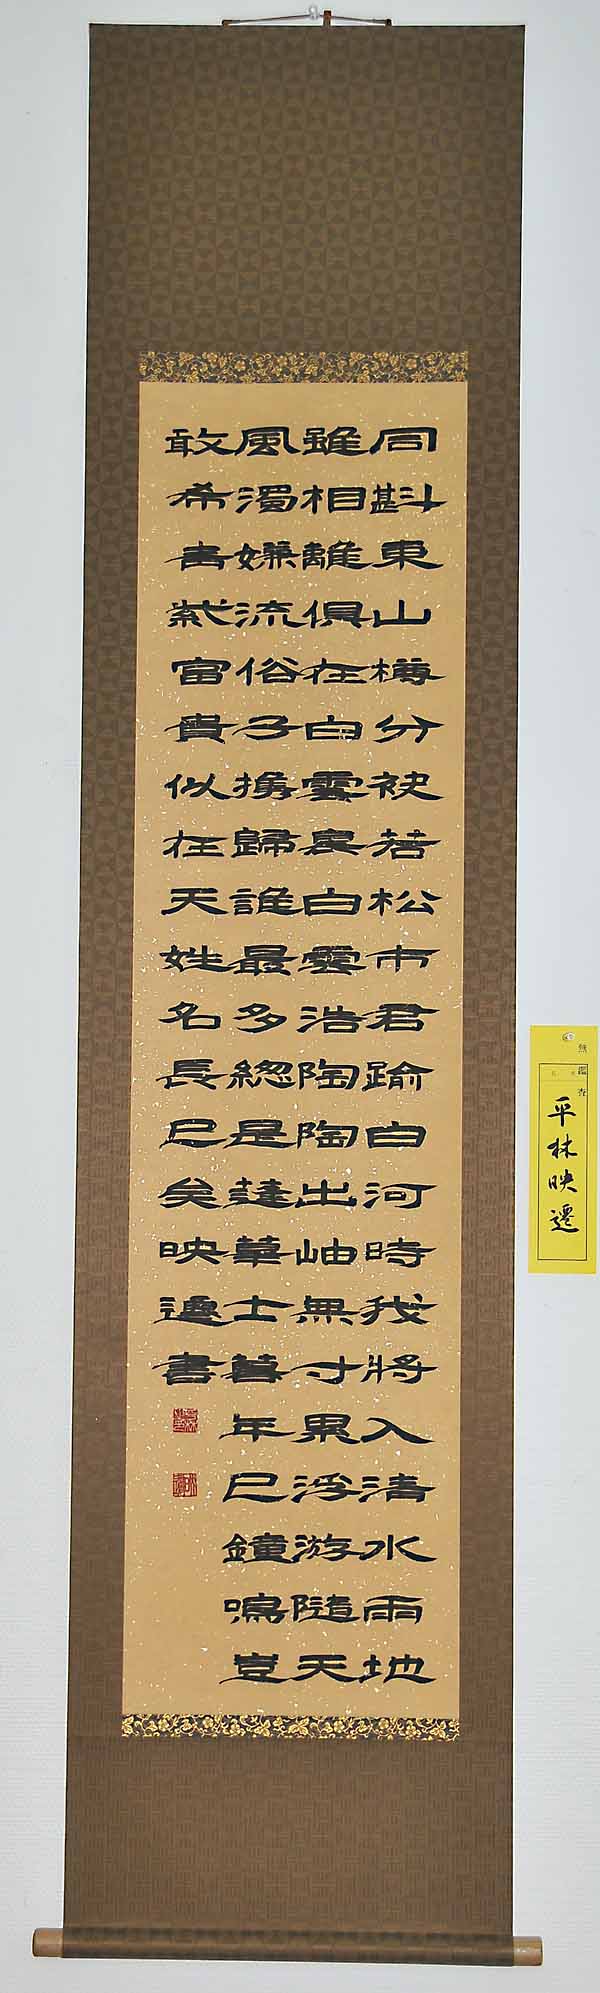 同斟東山樽分袂若松市君踰白河時我將入清水雨地
雖相離俱在白雲裏白雲浩陶陶出岫無寸累浮游隨天
風濁嫌流俗子攜歸誰最多總是蓬蓽士暮年已鐘鳴豈
敢希青紫富貴似在天姓名長已矣映遷書
無鑑査
平林映遷